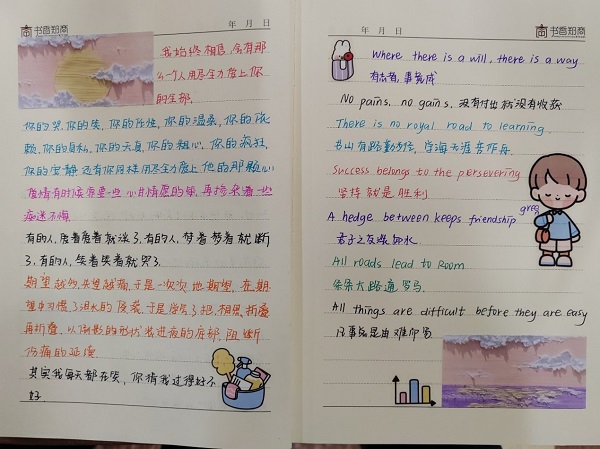 书香知商
年 月 日
我始终相信,会有那
么一个人用尽全力爱上你
的全部。
你的哭,你的笑,你的任性,你的温柔,你的依
赖,你的自私,你的天真,你的粗心,你的疯狂,
你的安静,还有你同样用尽全力爱上他的那颗心
爱情有时候需要一些心甘情愿的
有的人,爱着爱着就淡了,有的人,梦着梦着就断
了,有的人,笑着笑着就哭了。
期望越多,失望越痛,于是一次次地期望,在期
望中习惯了泪水的于是学会了把相思折叠
再折叠,以的形状出进夜的底部,阻断
伤痛的延续
其实我每天都在笑,你猜我过得好不
好
年 月 日
书香知商
Where there is a will, there is a way
有志者,事竟成
No pains, no gains. 没有付出就没有收获
There is no royal road to learning.
书山有路勤为径,学海无涯苦作舟.
Success belongs to the persevering
坚持就是胜利
A hedge between keeps friendship
greg
君子之交淡如水
All roads lead to Room
条条大路通罗马.
All things are difficult before they are easy
凡事总是由难而易